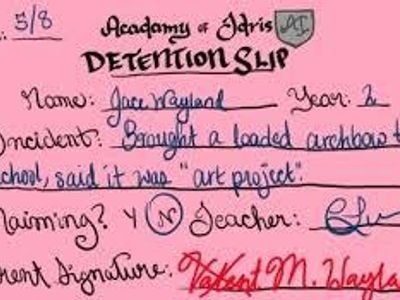 5/8
Academy of Idris AI
DETENTION SLIP
Name: Jace Wayland Year: 2
Incident: Brought a loaded archbow t
chool, said it was "art project".
aiming? Y N Teacher:
rent Signature: M. Wayla